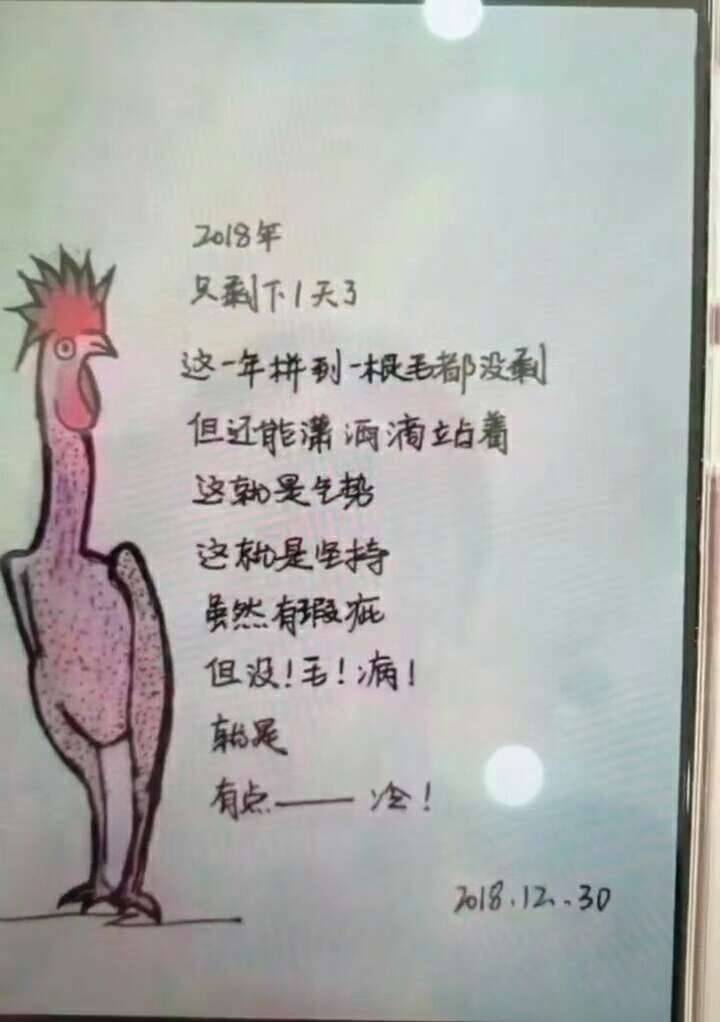 2018年
只剩下1天了
这一年拼到一根毛都没剩
但还能潇洒滴站着
这就是气势
这就是坚持
虽然有瑕疵
但没!毛!病!
就是
有点——冷!
2018.12..30